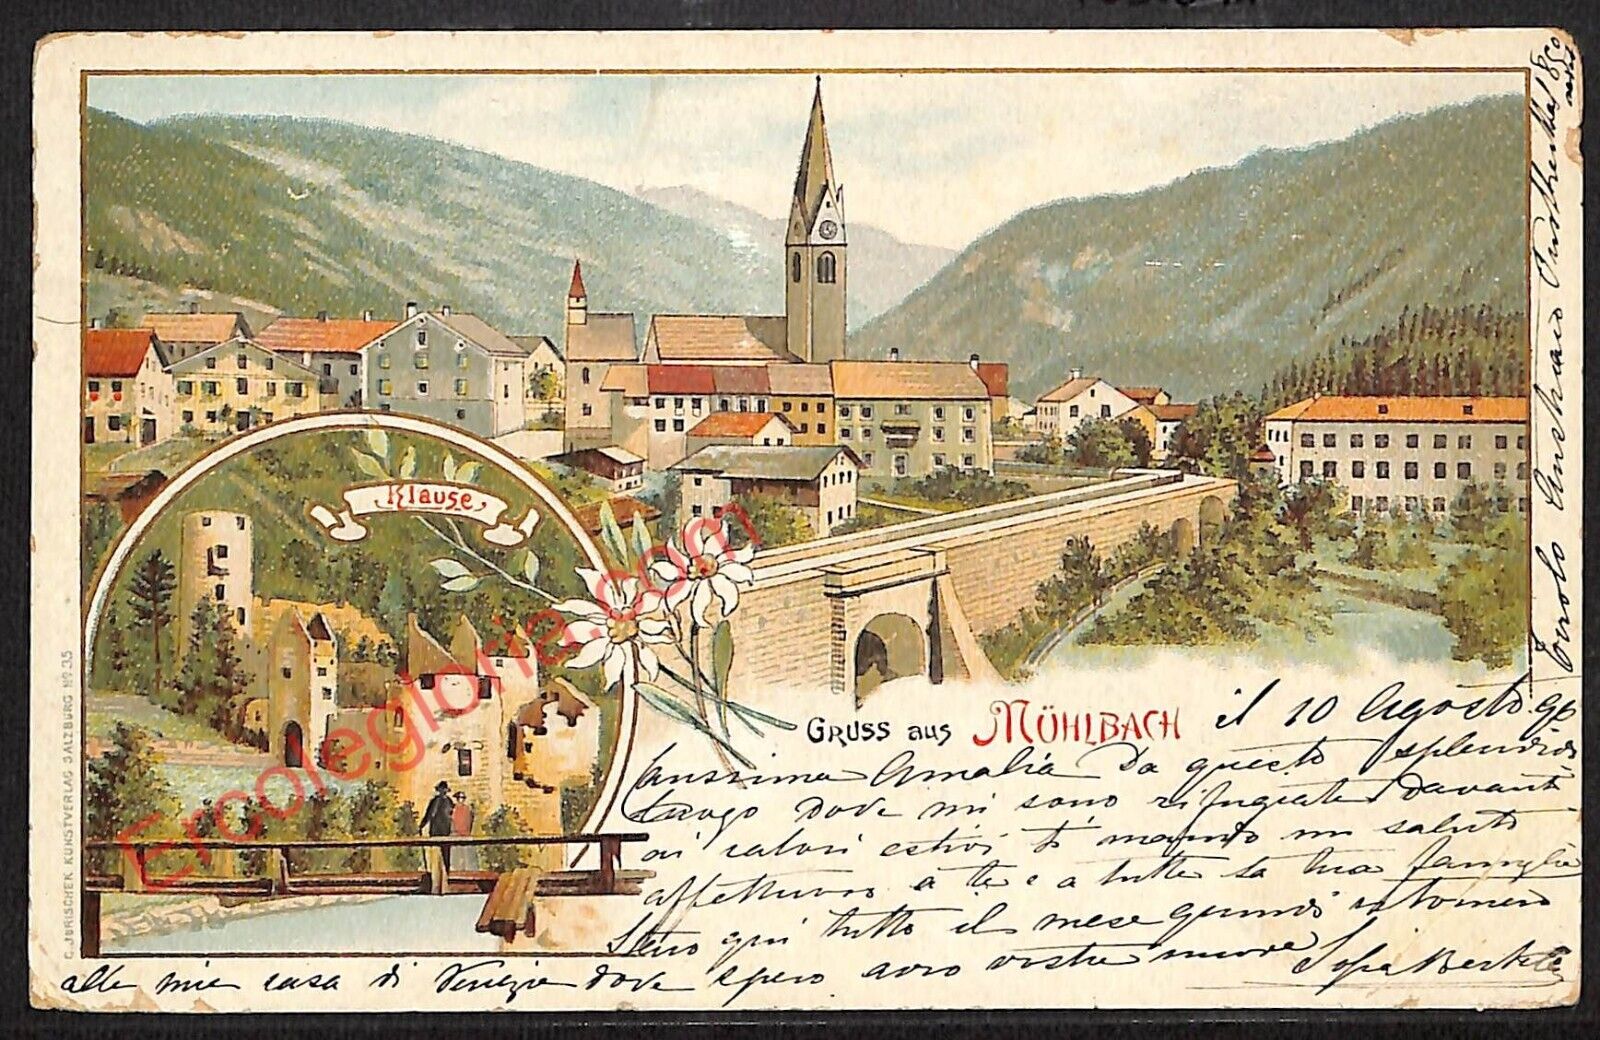 Klause
GRUSS aus MÜHLBACH
C. JURISCHEK, KUNSTVERLAG SALZBURG Nº 35
Ercolegloria.com
il 10 Agosto 99
Carissima Amalia Da questo splendido
luogo dove mi sono rifugiata davanti
ai calori estivi ti mando mi saluti
affettuosi a te e a tutta la tua famiglia
Starò qui tutto il mese quindi ritornerò
alla mia casa di Venezia dove spero avrò vostre nuove
Sofia
Tirolo Austriaco 850